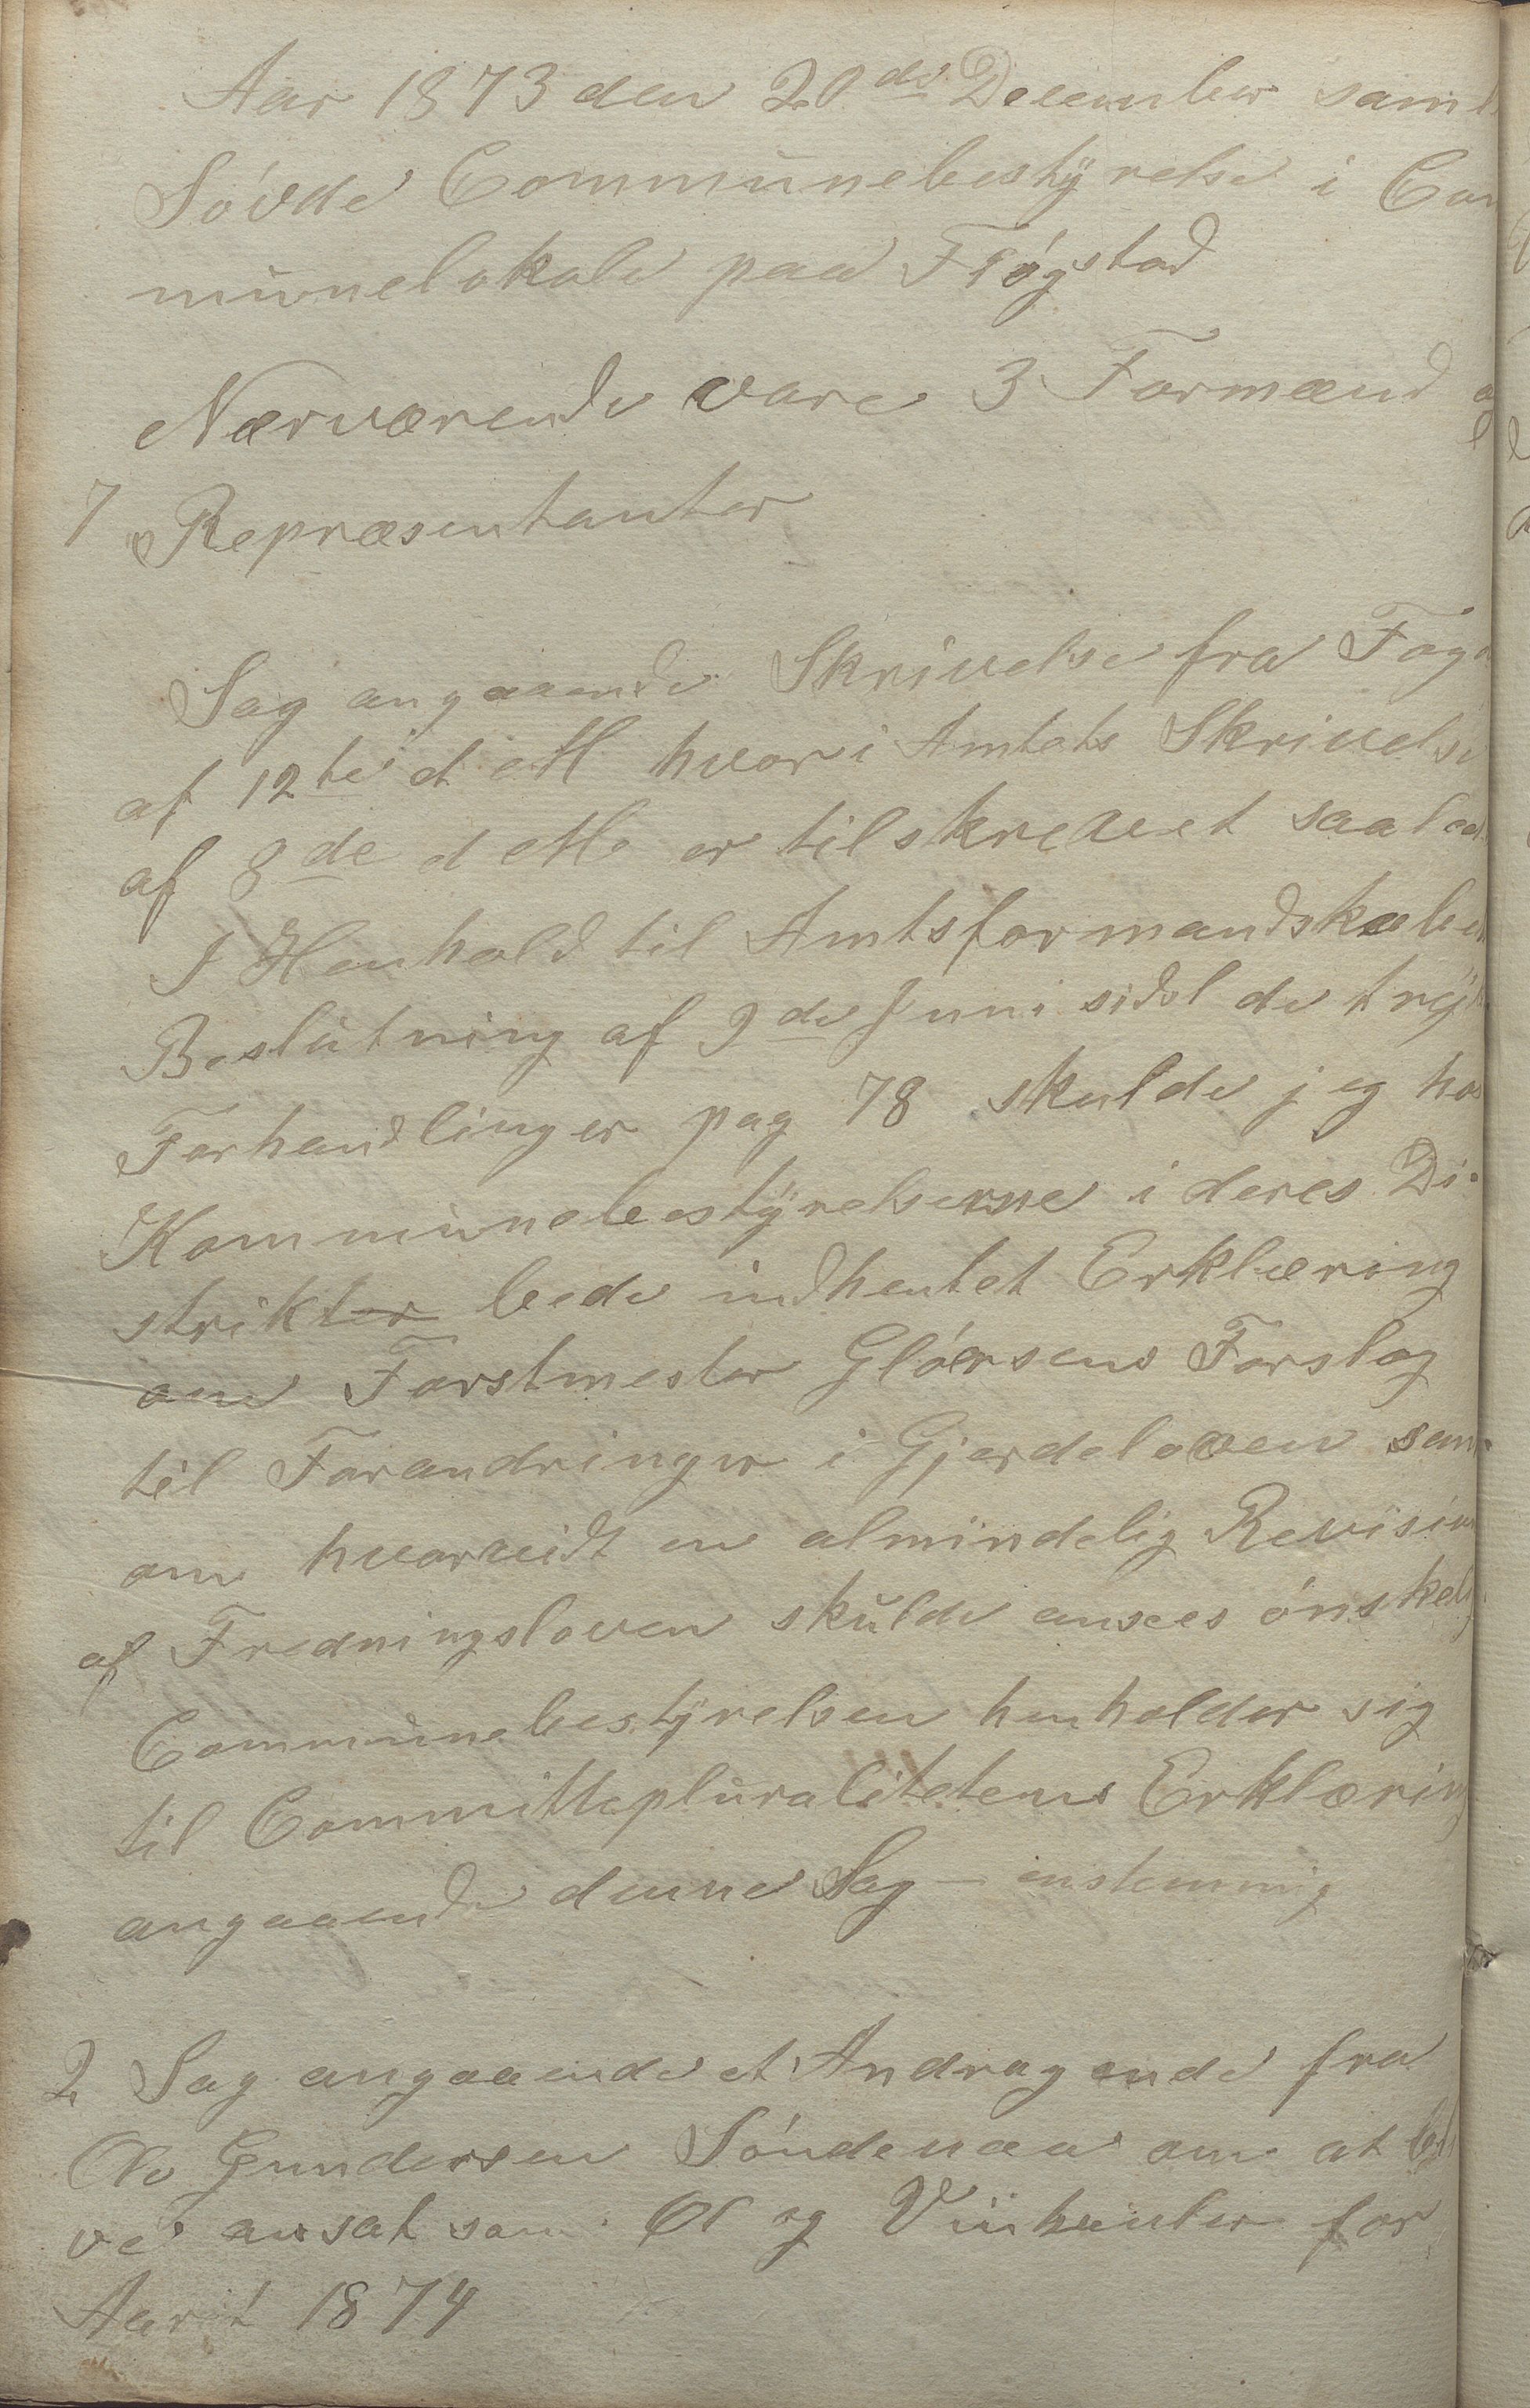 Aar 1873 den 20de December saml
Søvde Communebestyrelse i Com
munelokale paa Fløgstad
Nærværende vare 3 Formænd og
7 Repræsentanter
Sag angaaende Skrivelse fra Fog
af 12te d M hvori Amtets Skrivelse
af 8de d M er tilskrevet saaled
I Henhold til Amtsformandskabe
Beslutning af 9de Juni sidstl de tryk
Forhandlinger pag 78 skulde jeg ho
Kommunebestyrelserne i deres Di
strikter bede indhentet Erklæring
om Forstmester Gløersens Forslag
til Forandringer i Gjerdeloven sam
om hvorvidt en almindelig Revision
af Fredningsloven skulde ansees ønskelig
Communebestyrelsen henholder sig
til Committepluralitetens Erklæring
angaaende denne Sag – enstemmig
2 Sag angaaende et Andragende fra
Ole Gundersen Søndenaa om at bli
ve ansat som Øl og Viinhandler for
Aaret 1874